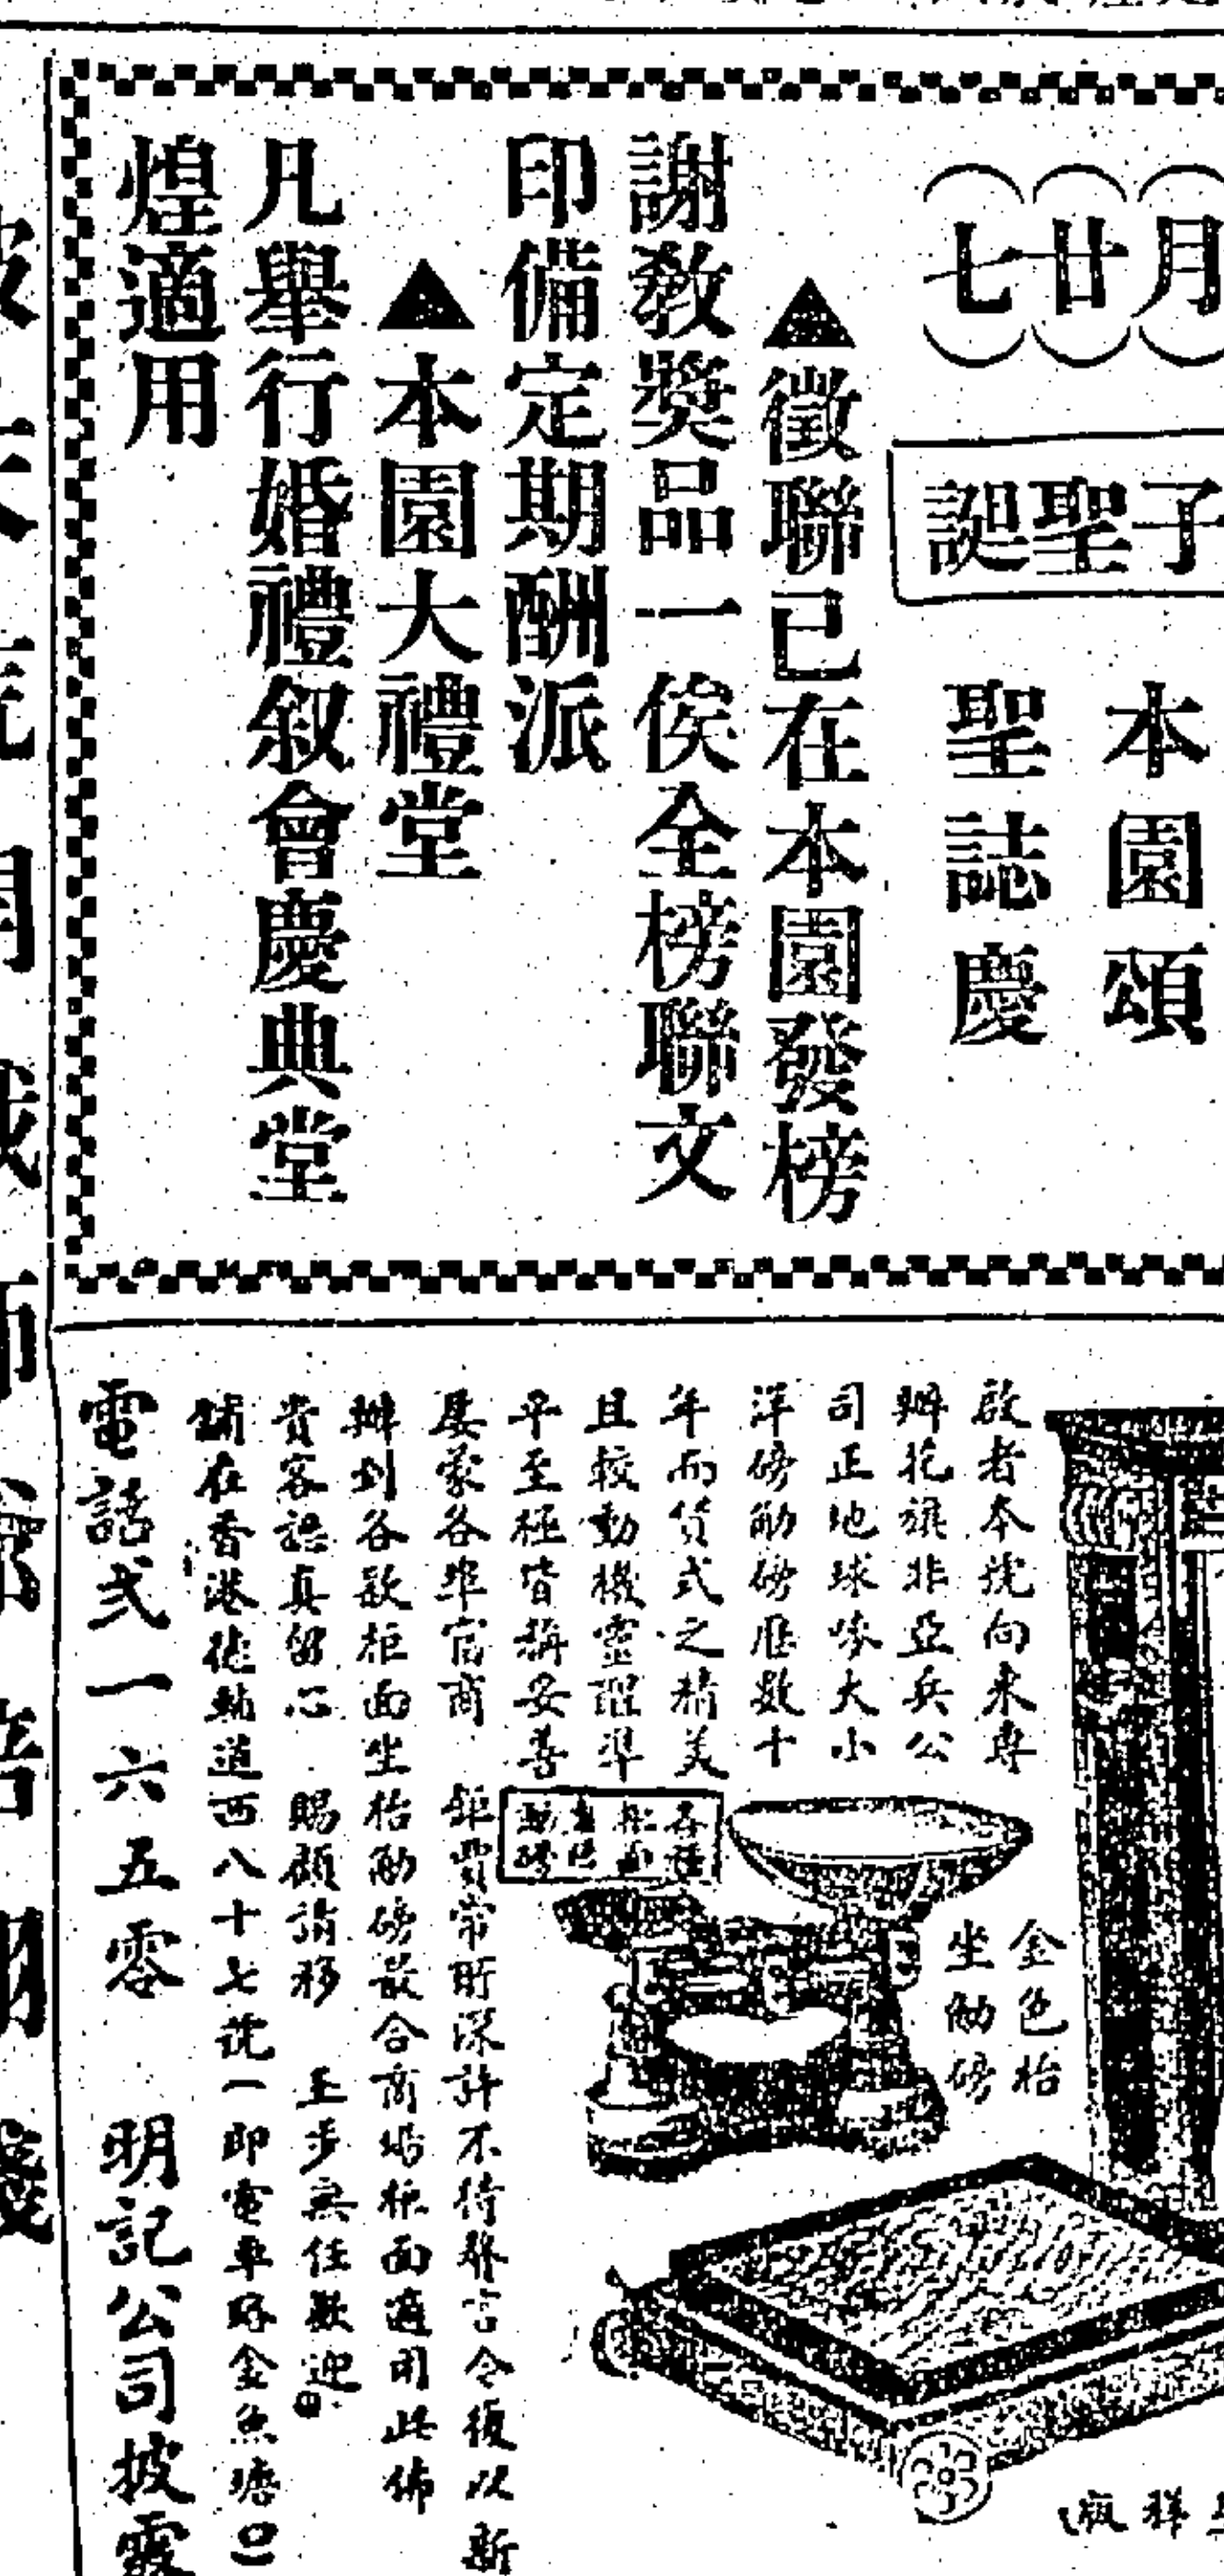 (月)(廿)(七)
子聖誕
本園頌
聖誌慶
▲徵聯已在本園發榜
謝教獎品一俟全榜聯文
印備定期酬派
▲本園大禮堂
凡舉行婚禮叙會慶典堂
煌適用
啟者本號向來專
辦花旗非亞兵公
司正地球嘜大小
洋磅觔磅歷數十
年而貨式之精美
且較動機靈醒準
平至極皆稱妥善
屡蒙各埠官商
鉅賈常時深許不待贅言今復以新
辦到各欵柜面坐枱觔磅最合商塲柜面適用此佈
貴客認真留心 賜顧請移 玉步無任歡迎
舖在香港德輔道西八十七號(即電車路金魚塘口)
電話弍一六五零 明記公司披露
金色枱
坐觔磅